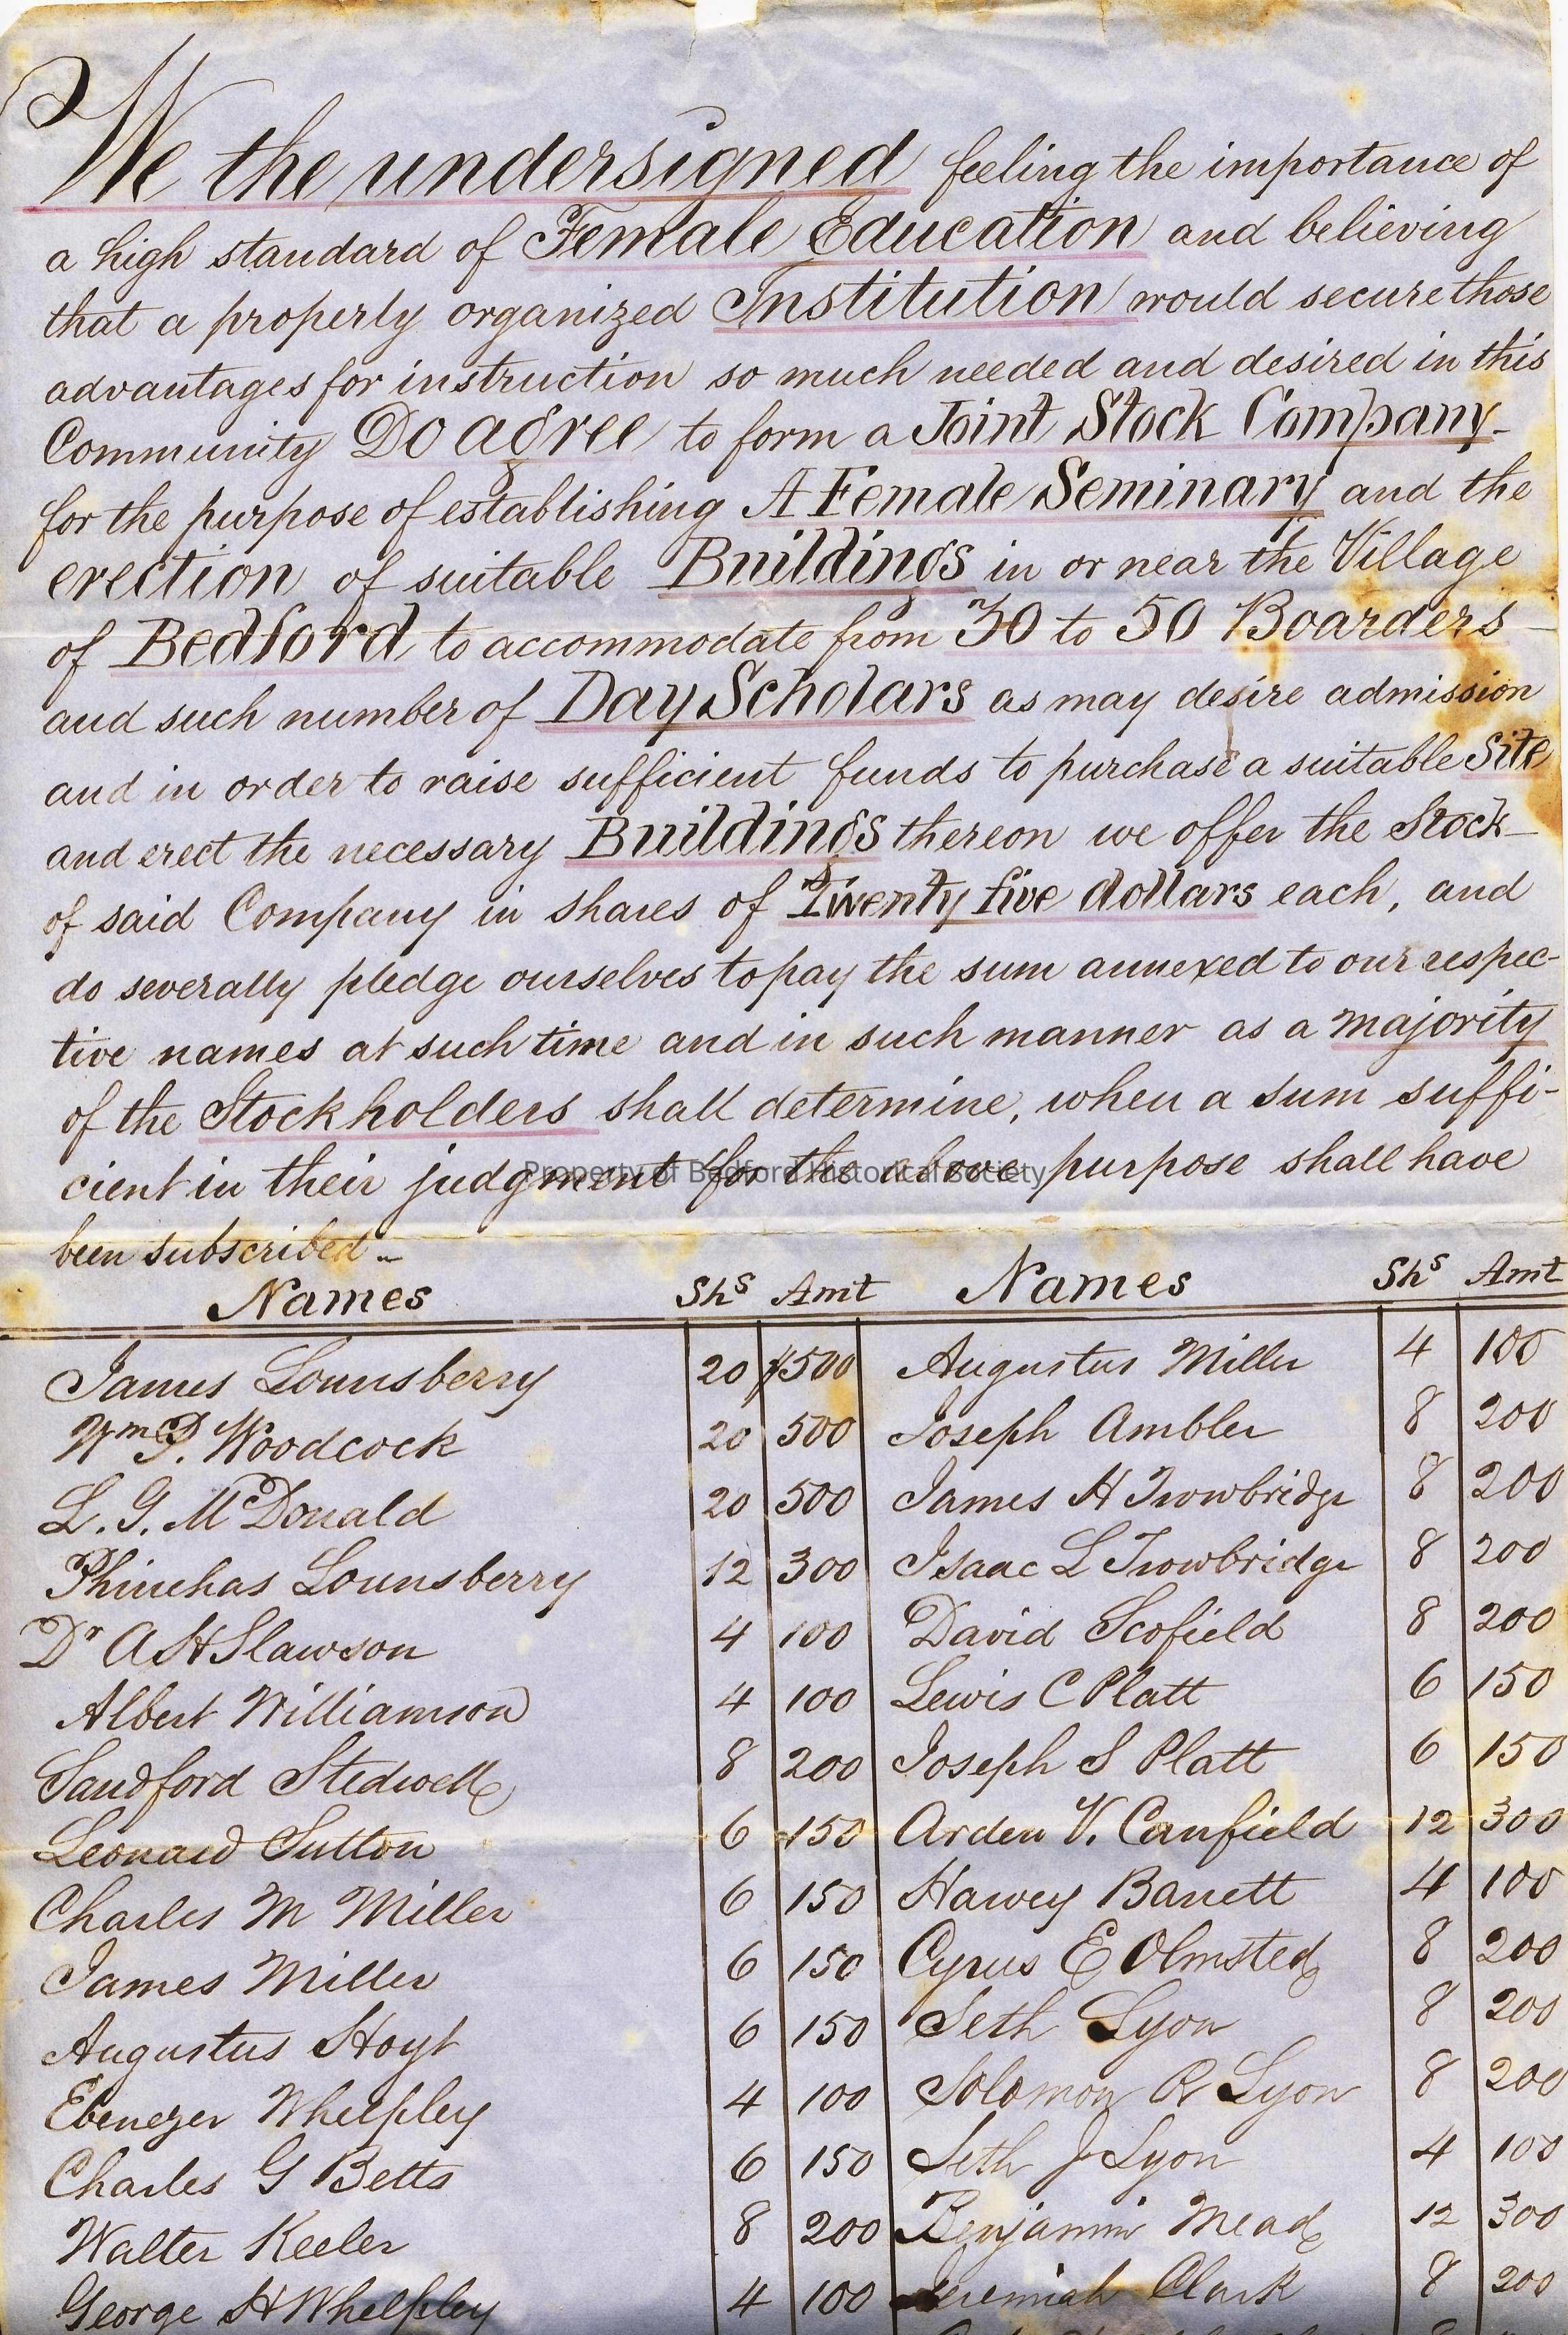 We the undersigned feeling the importance of
a high standard of Female Education and believing
that a properly organized Institution would secure those
advantages for instruction so much needed and desired in this
Community Do agree to form a Joint Stock Company
for the purpose of establishing A Female Seminary and the
erection of suitable Buildings in or near the Village
of Bedford to accommodate from 30 to 50 Boarders
and such number of Day Scholars as may desire admission
and in order to raise sufficient funds to purchase a suitable Site
and erect the necessary Buildings thereon we offer the Stock
of said Company in shares of Twenty five dollars each, and
do severally pledge ourselves to pay the sum annexed to our respec-
tive names at such time and in such manner as a majority
of the Stockholders shall determine, when a sum suffi-
cient in their judgment for the above purpose shall have
Property of Bedford Historical Society
been subscribed
Names Shs Amt Names Shs Amt
James Lounsberry 20 $500 Augustus Miller 4 100
Wm P. Woodcock 20 500 Joseph Ambler 8 200
L. G. McDonald 20 500 James H Trowbridge 8 200
Phinehas Lounsberry 12 300 Isaac L Trowbridge 8 200
Dr A H Slawson 4 100 David Scofield 8 200
Albert Williamson 4 100 Lewis C Platt 6 150
Sandford Stedwell 8 200 Joseph S Platt 6 150
Leonard Sutton 6 150 Arden V. Canfield 12 300
Charles M Miller 6 150 Harvey Barrett 4 100
James Miller 6 150 Cyrus E Olmsted 8 200
Augustus Hoyt 6 150 Seth Lyon 8 200
Ebenezer Whelpley 4 100 Solomon R Lyon 8 200
Charles G Betts 6 150 Seth J Lyon 4 100
Walter Keeler 8 200 Benjamin Mead 12 300
George H Whelpley 4 100 Jeremiah Clark 8 200